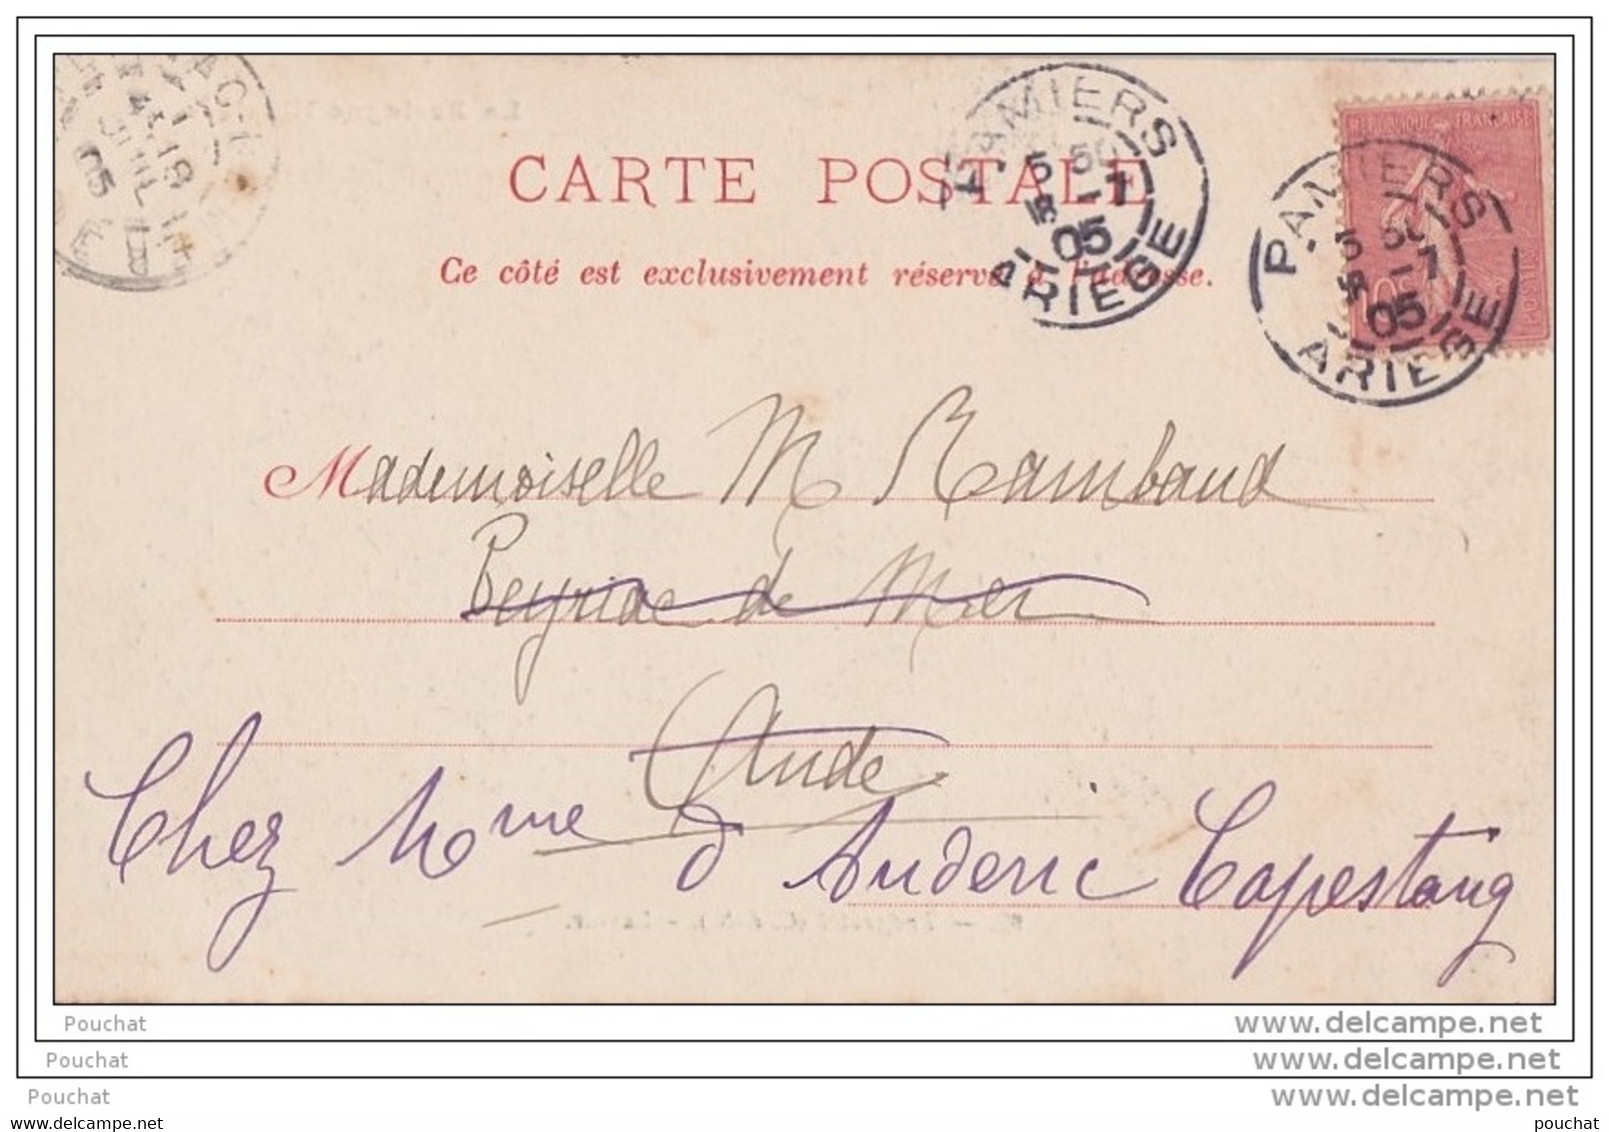 CARTE POSTALE
Ce côté est exclusivement réservé à l'adresse.
PAMIERS
5 50
18 -7
05
ARIEGE
REPUBLIQUE FRANÇAISE
10c
POSTES
PAMIERS
5 50
18 -7
05
ARIEGE
18 JUIL
05
Mademoiselle M Rambaud
Peyriac de Mer
Aude
Chez Mme d Auderic Capestang
Pouchat
www.delcampe.net
Pouchat
www.delcampe.net
Pouchat
www.delcampe.net
www.delcampe.net
pouchat